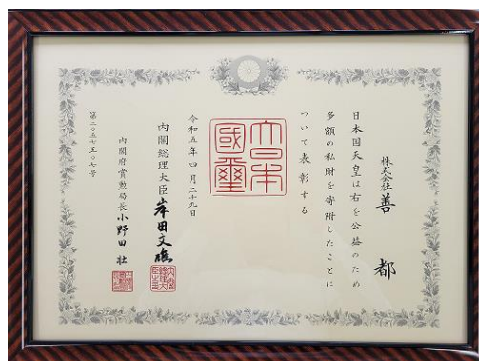 株式会社善都
日本国天皇は右を公益のため
多額の私財を寄附したことに
ついて表彰する
大日本
國璽
令和五年四月二十九日
内閣総理大臣岸田文雄
内閣府賞勲局長小野田壮